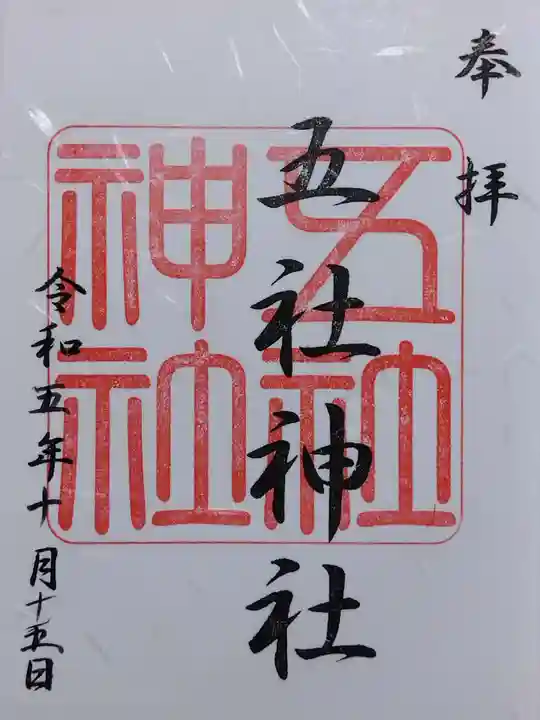 奉拝
五社神社
五社神社
令和五年十月十五日